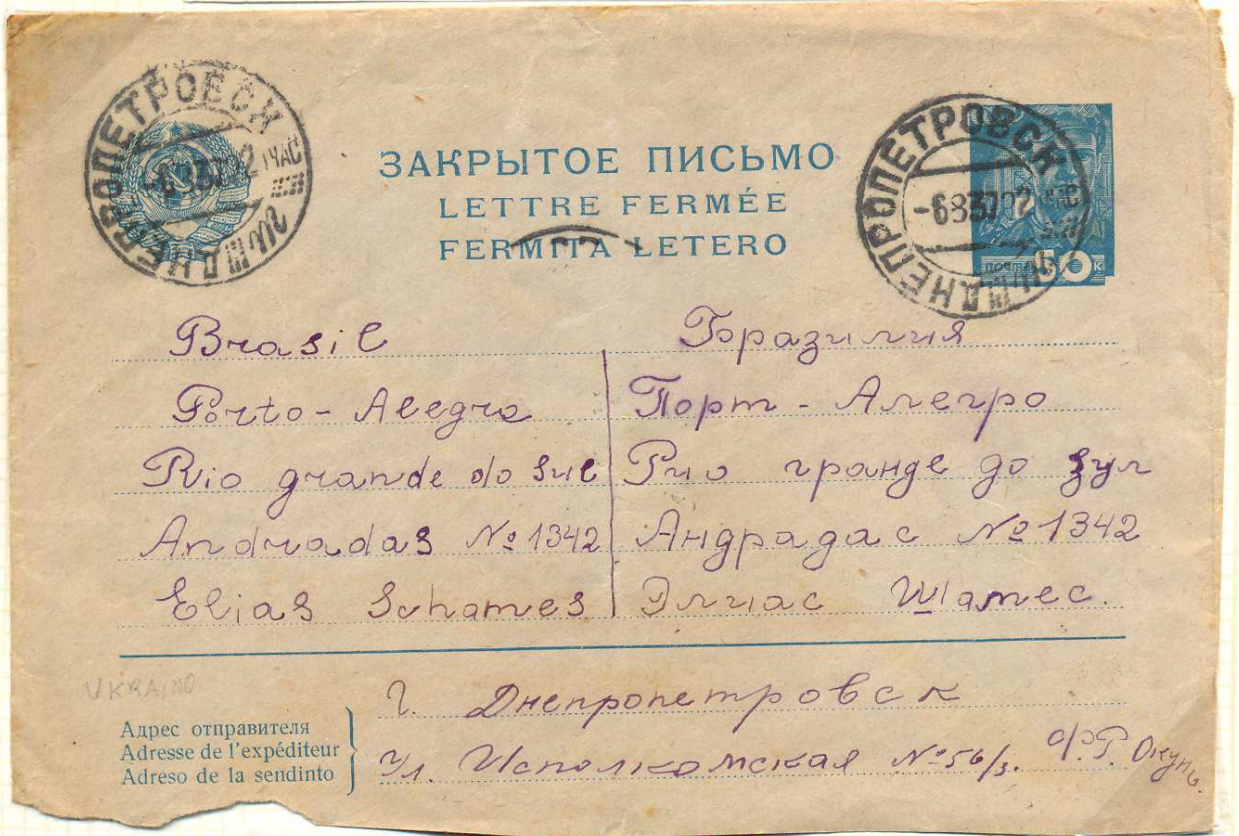 ДНЕПРОПЕТРОВСК
-6 8 37 22 ЧАС
ДНЕПРОПЕТРОВСК
-6 8 37 22
ПОЧТА 50 К
ЗАКРЫТОЕ ПИСЬМО
LETTRE FERMÉE
FERMITA LETERO
Brasil
Porto-Alegra
Rio grande do Sul
Andradas № 1342
Elias Schames
Бразилия
Порт-Алегро
Рио гранде до зул
Андрадас № 1342
Элиас Шамес.
UKRAINO
Адрес отправителя
Adresse de l'expéditeur
Adreso de la sendinto
г. Днепропетровск
ул. Исполкомская № 56/3. Ф.Р. Окунь.